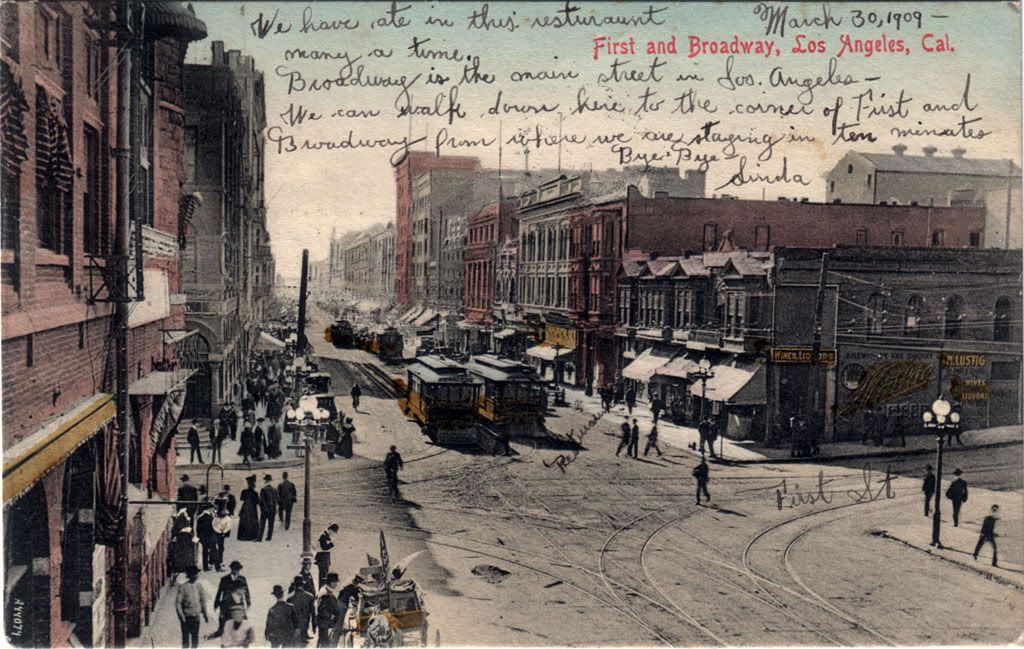 We have ate in this resturaunt
March 30, 1909 -
many a time.
First and Broadway, Los Angeles, Cal.
Broadway is the main street in Los. Angeles -
We can walk down here to the corner of First and
Broadway from where we are staging in ten minutes
Bye-Bye-
Linda
WINES, LIQUORS
M. LUSTIG
WINES
LIQUORS
First St